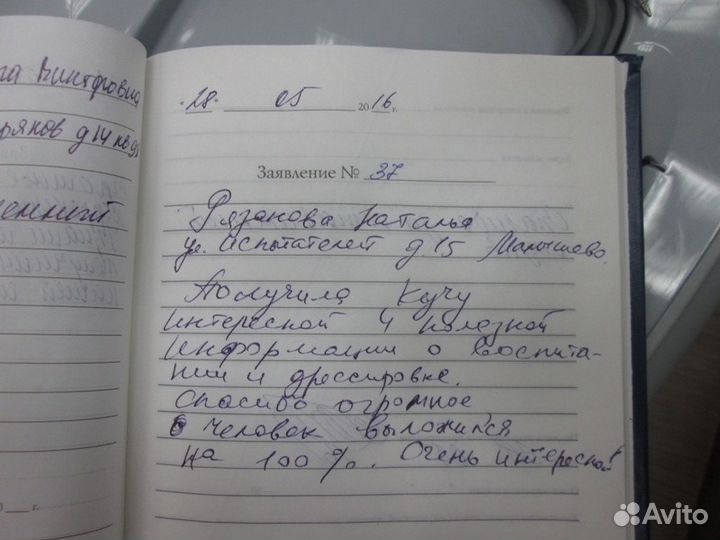 Винтфовна
д 14 кв 95
28 05 2016 г.
Заявление № 37
Рязанова Наталья
ул. Испытателей д 15 Малышево.
Получила кучу
интересной и полезной
информации о воспита-
нии и дрессировке.
Спасибо огромное
Человек выложился
на 100 %. Очень интересно!
0 г.
Avito